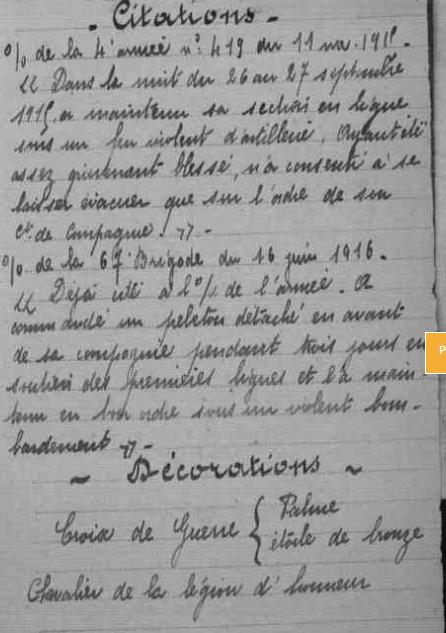 - Citations -
O/. de la 4e armée no: 419 du 11 nov. 1915.
"Dans la nuit du 26 au 27 septembre
1915, a maintenu sa section en ligne
sous un feu violent d'artillerie. Ayant été
assez grièvement blessé, n'a consenti à se
laisser évacuer que sur l'ordre de son
Ct. de Compagnie. " -
O/. de la 67e Brigade du 16 juin 1916.
"Déjà cité à l'O/. de l'armée. A
commandé un peloton détaché en avant
de sa compagnie pendant trois jours en
soutien des premières lignes et l'a main-
tenu en bon ordre sous un violent bom-
bardement " -
~ Décorations ~
Croix de Guerre { Palme
étoile de bronze
Chevalier de la légion d'honneur
P